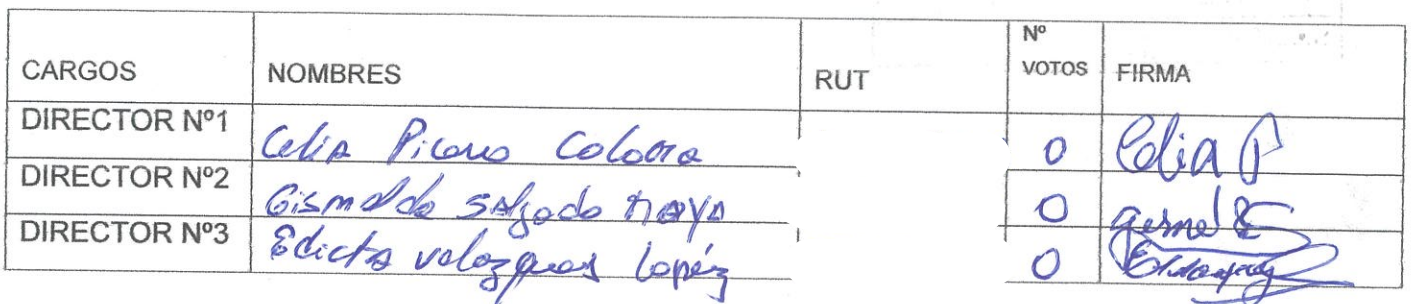 CARGOS NOMBRES RUT Nº VOTOS FIRMA
DIRECTOR Nº1 Celia Picono Coloma 0 Celia P
DIRECTOR Nº2 Gismaldo Salgado Maya 0
DIRECTOR Nº3 Edicta velazques lopéz 0